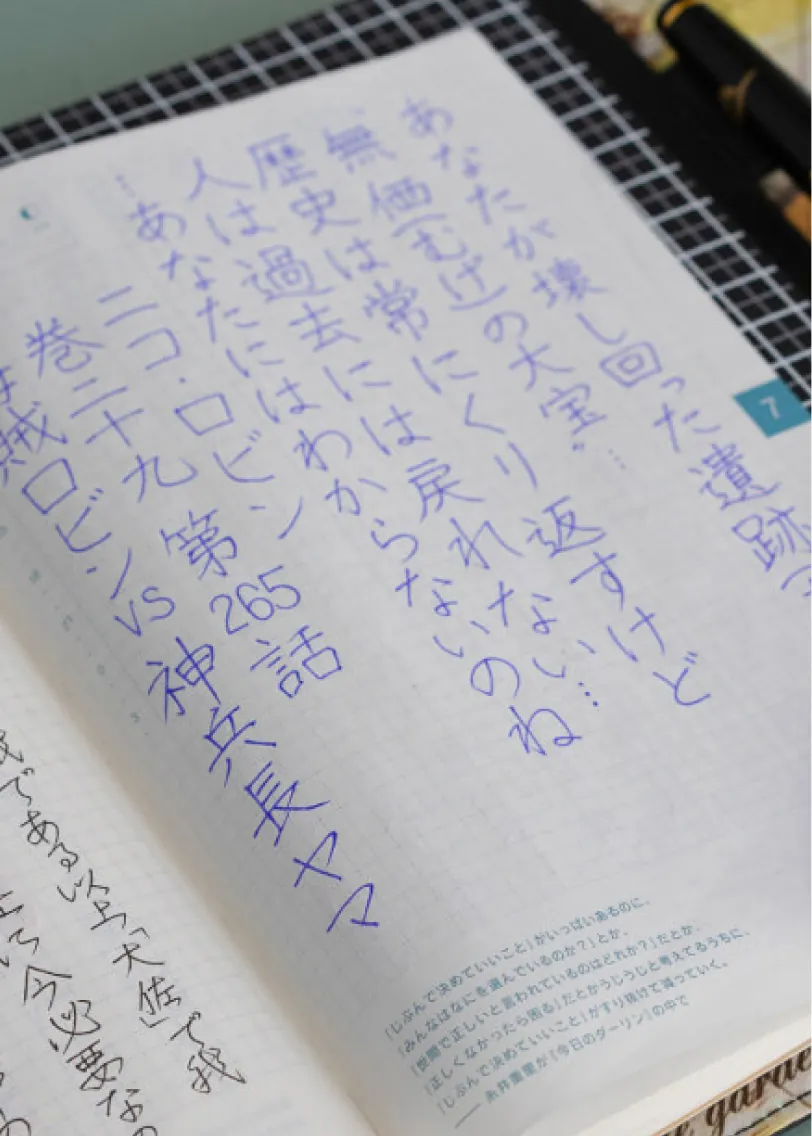 7
あなたが壊し回った遺跡
無価(むげ)の大宝…
歴史は常にくり返すけど
人は過去には戻れない…
あなたにはわからないのね
ニコ・ロビン
巻二十九 第265話
賊ロビンvs 神兵長ヤマ
「じぶんで決めていいこと」がいっぱいあるのに、
「みんなはなにを選んでいるのか？」とか、
「世間で正しいと言われているのはどれか？」だとか、
「正しくなかったら困る」だとかうじうじと考えてるうちに、
「じぶんで決めていいこと」がすり抜けて減っていく。
——糸井重里が『今日のダーリン』の中で
である以上「大佐」で我
今必要な